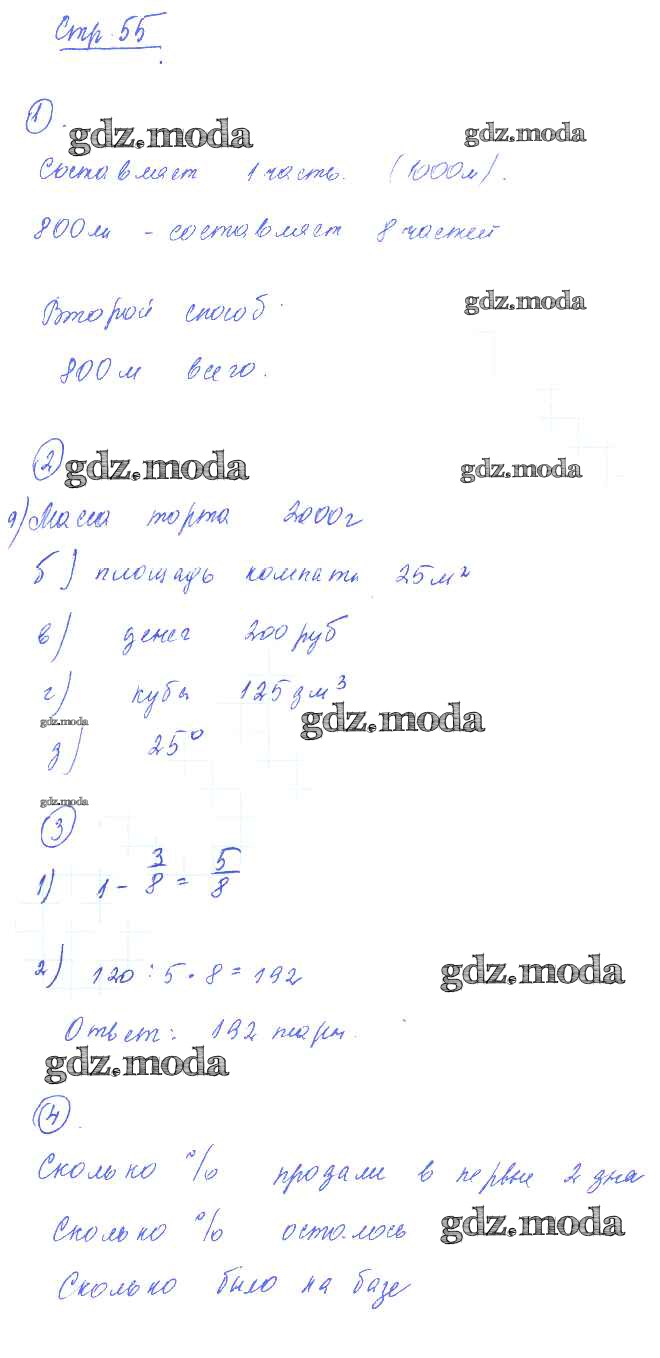 Стр. 55
1
gdz.moda gdz.moda
Составляет 1 часть. (1000м).
800м - составляет 8 частей
gdz.moda
Второй способ.
800м всего.
2 gdz.moda gdz.moda
а) Масса торта 2000г
б) площадь комнаты 25м²
в) денег 200 руб
г) куба 125 дм³
gdz.moda gdz.moda
д) 25°
gdz.moda
3
1) 1 - 3/8 = 5/8
2) 120 : 5 • 8 = 192 gdz.moda
Ответ: 192 пары.
gdz.moda
4.
Сколько % продали в первые 2 дня
Сколько % осталось gdz.moda
Сколько было на базе